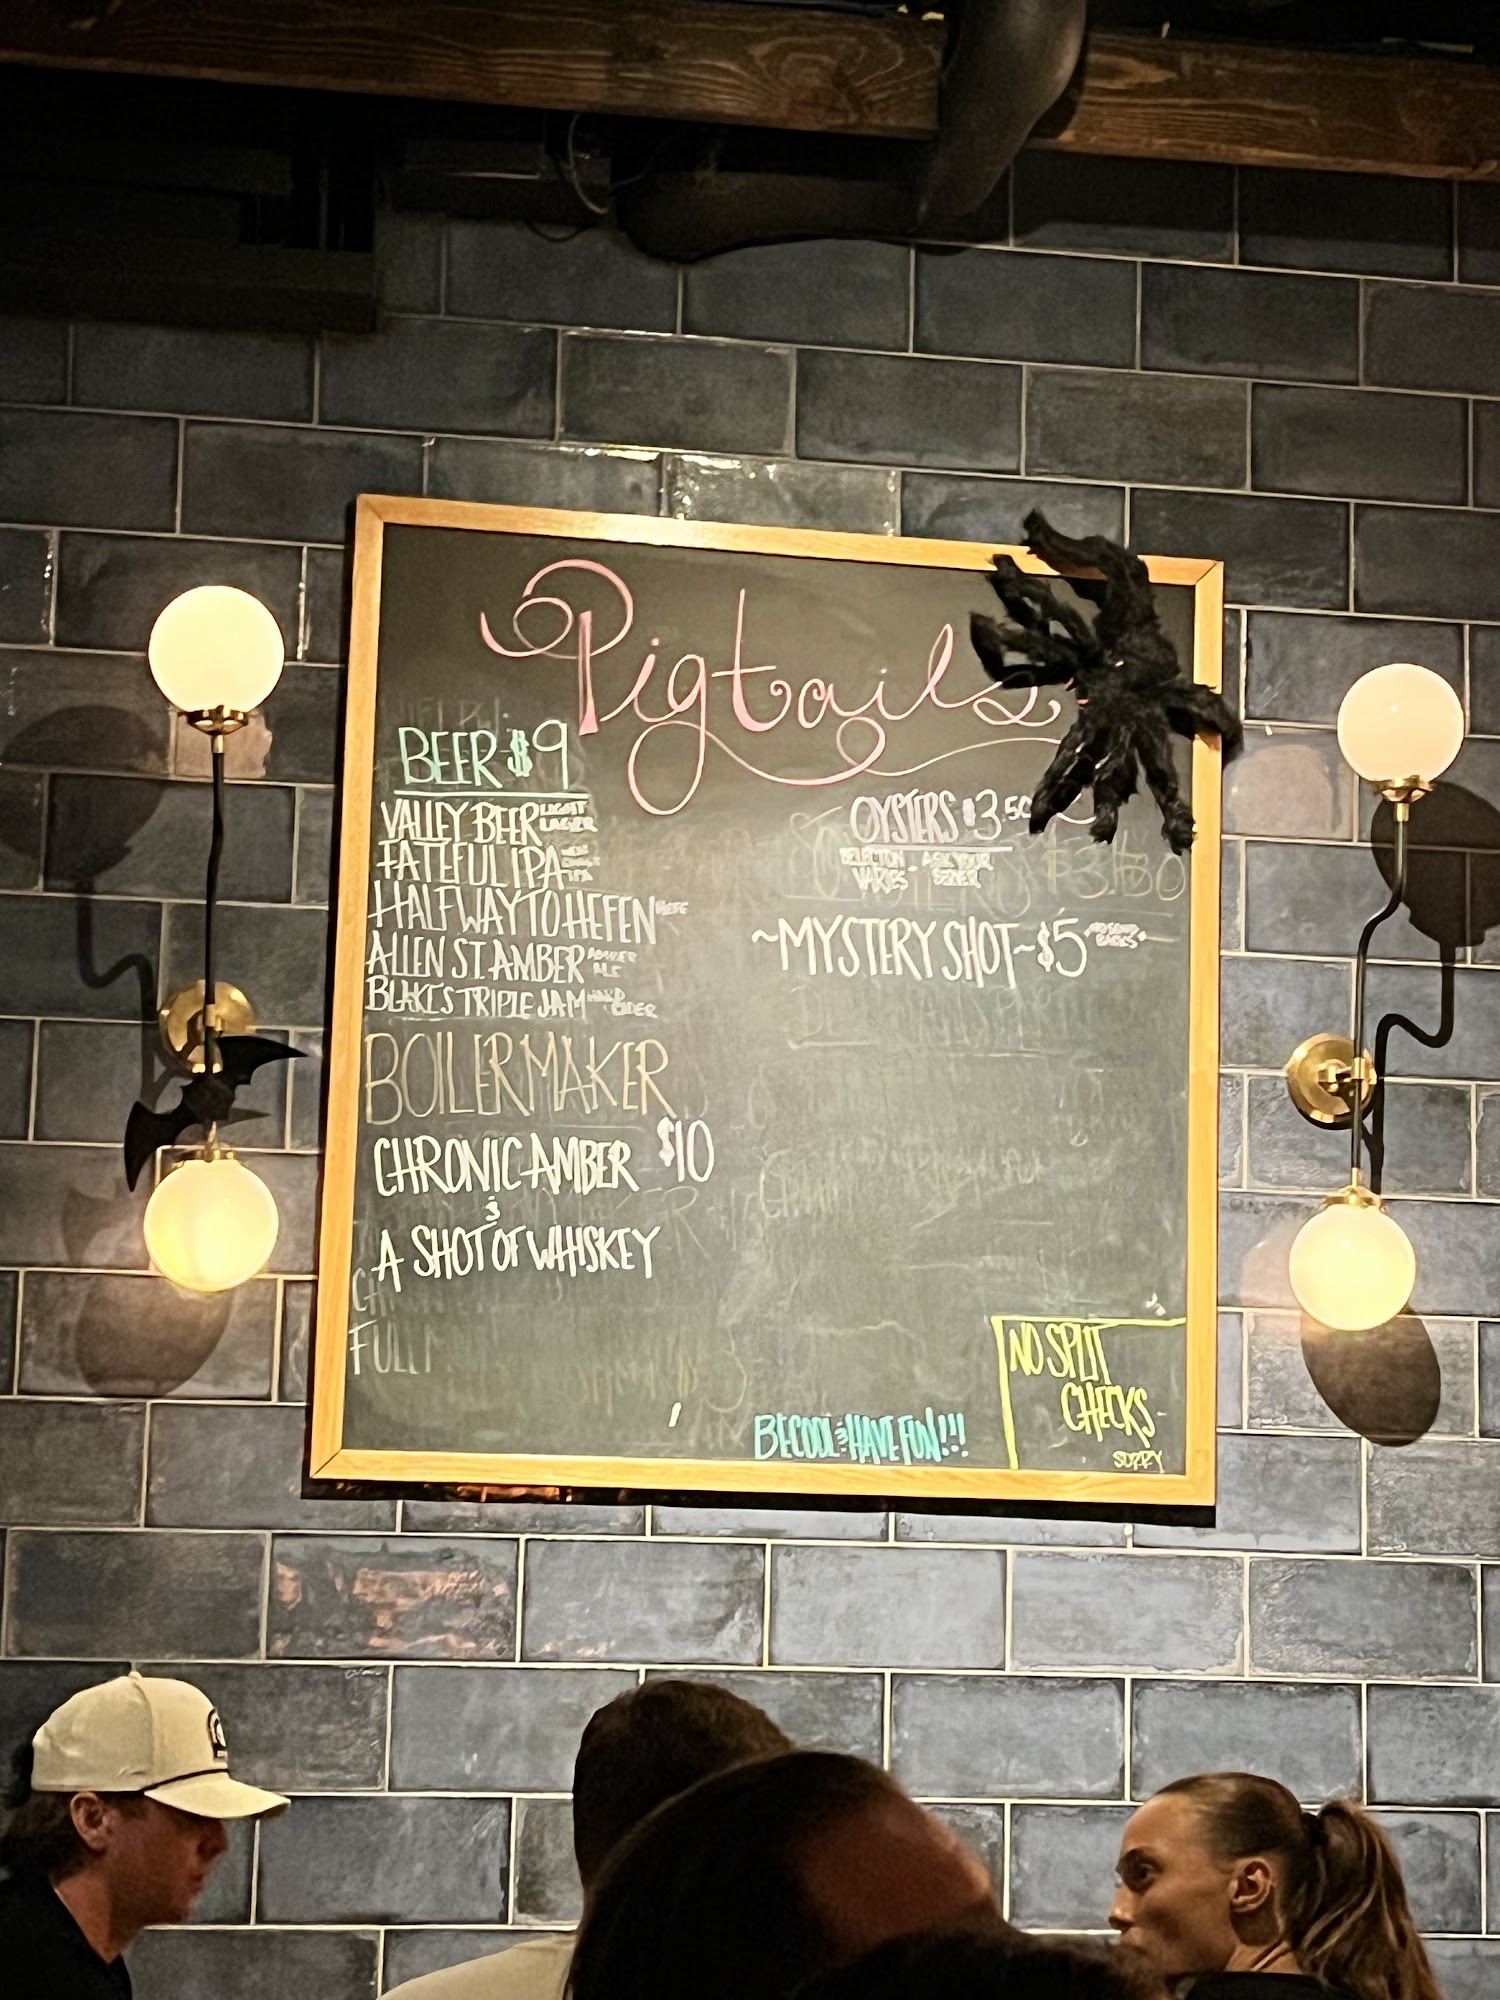 Pigtails
BEER $9
VALLEY BEER LIGHT LAGER
FATEFUL IPA
HALFWAY TO HEFEN HEFE
ALLEN ST. AMBER AMBER ALE
BLAKES TRIPLE JAM HARD CIDER
BOILERMAKER
CHRONIC AMBER $10
&
A SHOT OF WHISKEY
OYSTERS $3.50
SELECTION VARIES - ASK YOUR
~MYSTERY SHOT~ $5
BE COOL & HAVE FUN!!!
NO SPLIT
CHECKS
SORRY